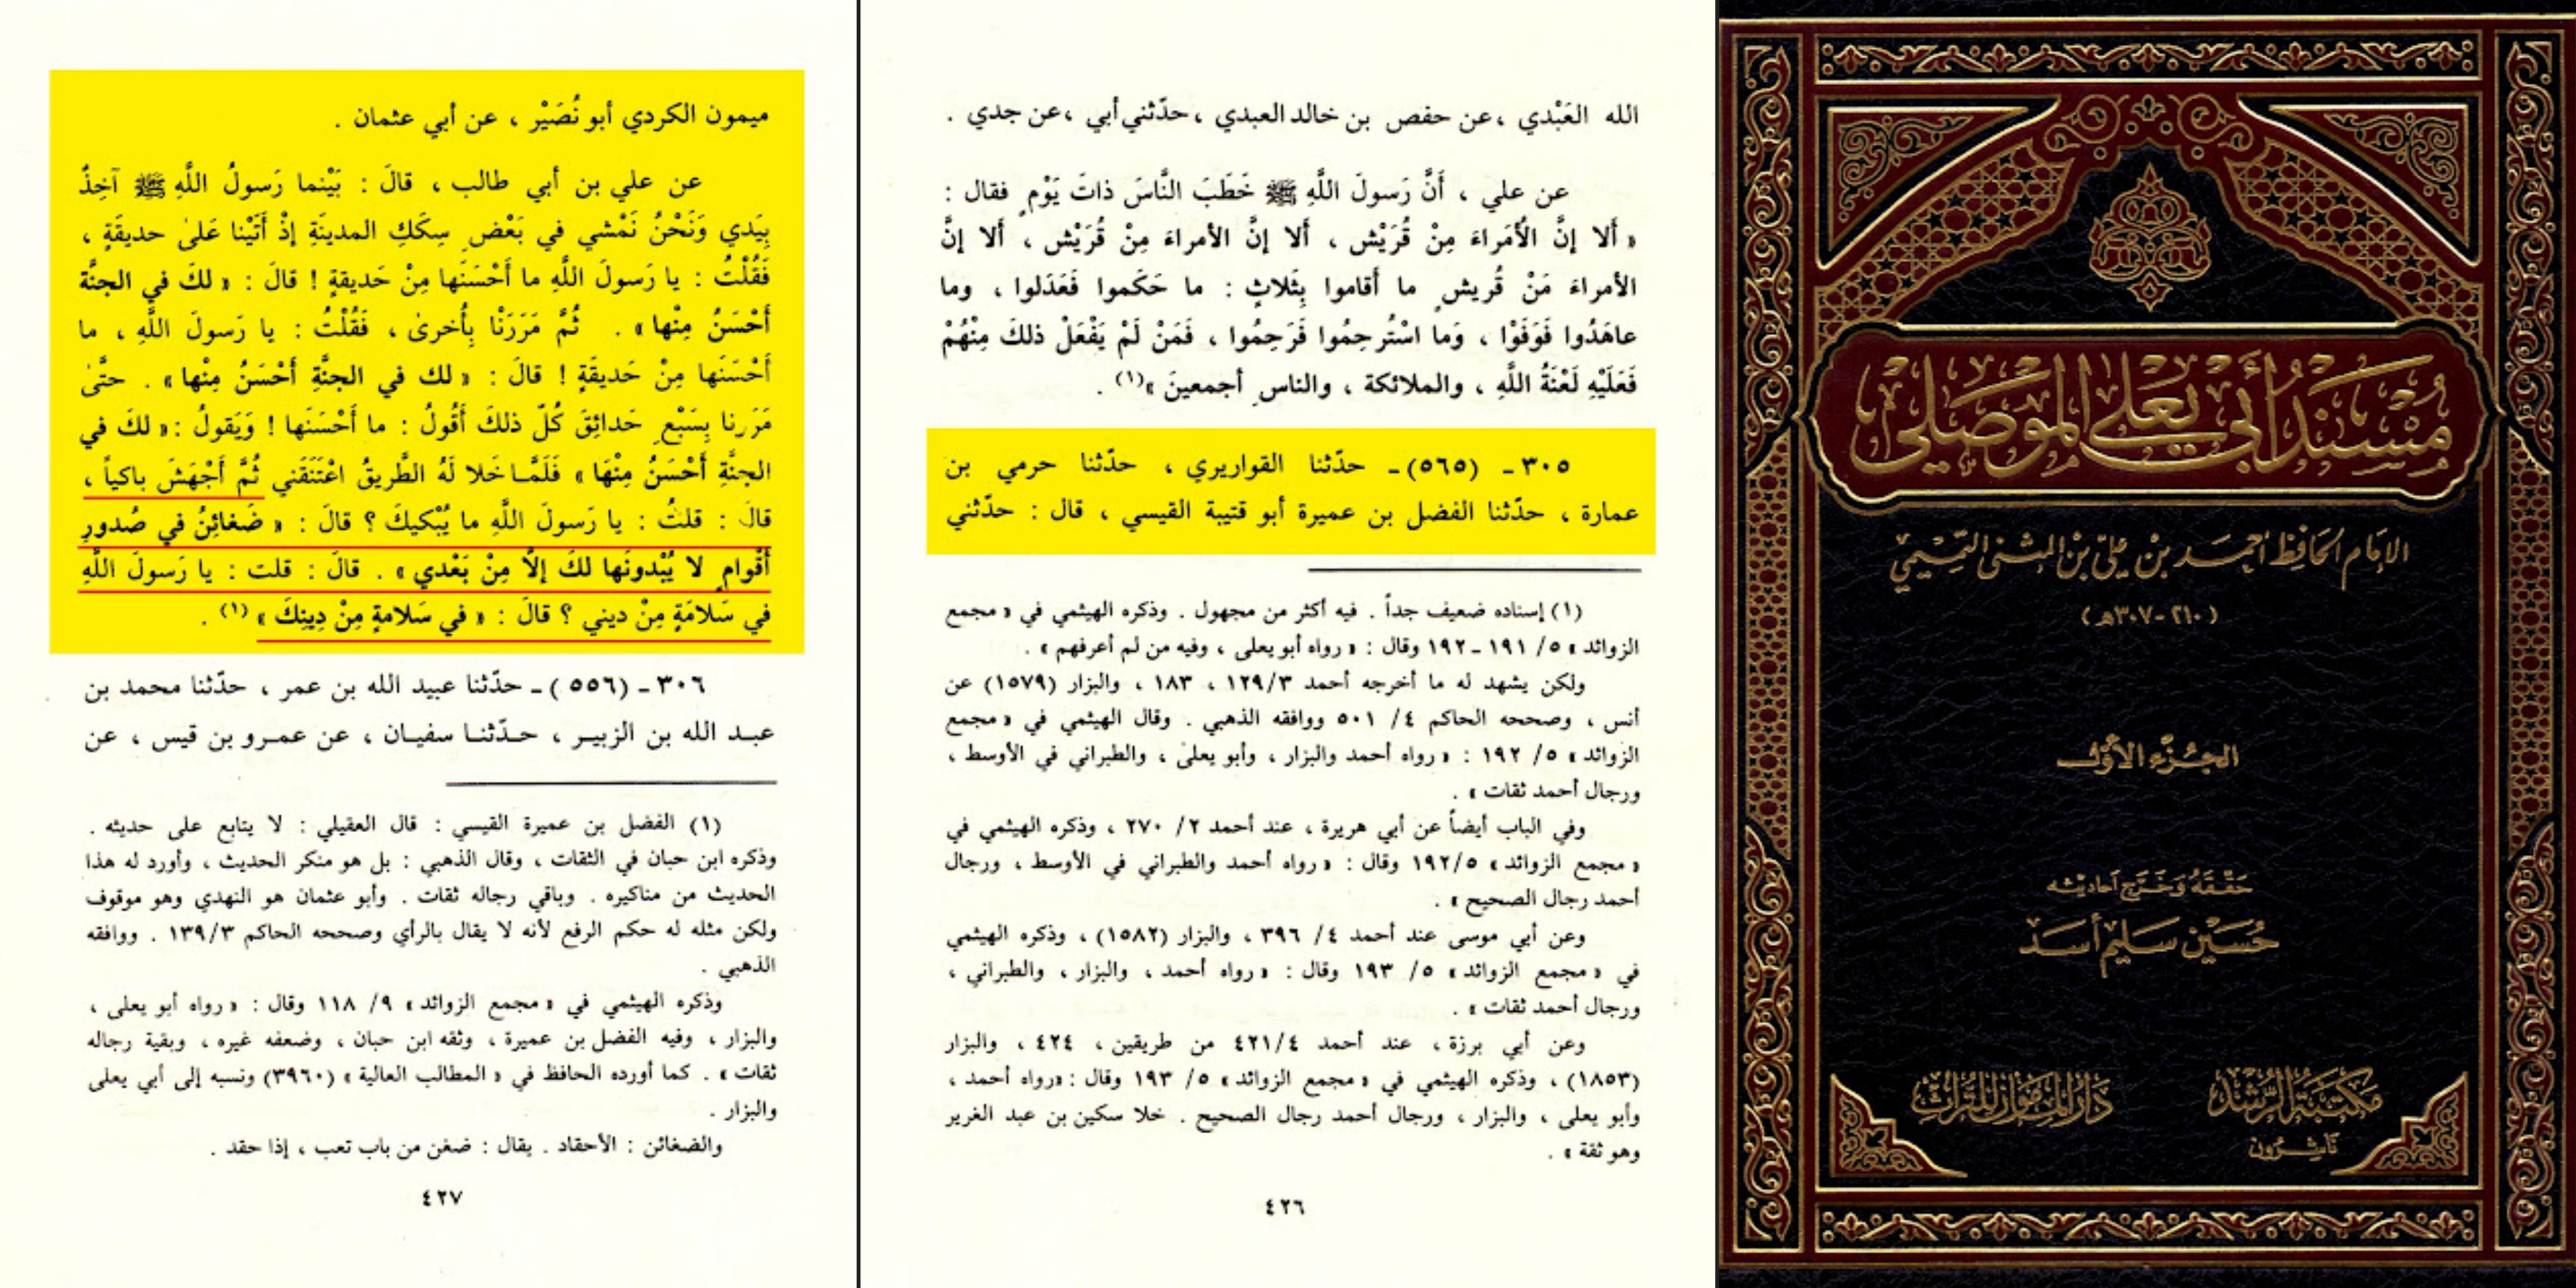 الله العَبْدي ، عن حفص بن خالد العبدي ، حدّثني أبي ، عن جدي .
عن علي ، أَنَّ رَسولَ اللَّهِ ﷺ خَطَبَ النَّاسَ ذاتَ يَوْمٍ فقال :
« أَلا إنَّ الأُمَراءَ مِنْ قُرَيْش ، أَلا إنَّ الأمراءَ مِنْ قُرَيْش ، أَلا إنَّ
الأمراءَ مَنْ قُريش ما أَقاموا بِثَلاثٍ : ما حَكَموا فَعَدَلوا ، وما
عاهَدُوا فَوَفَوْا ، وَما اسْتُرحِمُوا فَرَحِمُوا ، فَمَنْ لَمْ يَفْعَلْ ذلكَ مِنْهُمْ
فَعَلَيْهِ لَعْنَةُ اللَّهِ ، والملائكة ، والناسِ أجمعينَ »(١) .
٣٠٥ - (٥٦٥) - حدّثنا القواريري ، حدّثنا حرمي بن
عمارة ، حدّثنا الفضل بن عميرة أبو قتيبة القيسي ، قال : حدّثني
(١) إسناده ضعيف جداً . فيه أكثر من مجهول . وذكره الهيثمي في « مجمع
الزوائد » ٥/ ١٩١ - ١٩٢ وقال : « رواه أبو يعلى ، وفيه من لم أعرفهم » .
ولكن يشهد له ما أخرجه أحمد ٣/١٢٩ ، ١٨٣ ، والبزار (١٥٧٩) عن
أنس ، وصححه الحاكم ٤/ ٥٠١ ووافقه الذهبي . وقال الهيثمي في « مجمع
الزوائد » ٥/ ١٩٢ : « رواه أحمد والبزار ، وأبو يعلىٰ ، والطبراني في الأوسط ،
ورجال أحمد ثقات » .
وفي الباب أيضاً عن أبي هريرة ، عند أحمد ٢/ ٢٧٠ ، وذكره الهيثمي في
« مجمع الزوائد » ٥/١٩٢ وقال : « رواه أحمد والطبراني في الأوسط ، ورجال
أحمد رجال الصحيح » .
وعن أبي موسى عند أحمد ٤/ ٣٩٦ ، والبزار (١٥٨٢) ، وذكره الهيثمي
في « مجمع الزوائد » ٥/ ١٩٣ وقال : « رواه أحمد ، والبزار ، والطبراني ،
ورجال أحمد ثقات » .
وعن أبي برزة ، عند أحمد ٤/٤٢١ من طريقين ، ٤٢٤ ، والبزار
(١٨٥٣) ، وذكره الهيثمي في « مجمع الزوائد » ٥/ ١٩٣ وقال : «رواه أحمد ،
وأبو يعلى ، والبزار ، ورجال أحمد رجال الصحيح . خلا سكين بن عبد الغرير
وهو ثقة » .
٤٢٦
ميمون الكردي أبو نُصَيْر ، عن أبي عثمان .
عن علي بن أبي طالب ، قالَ : بَيْنما رَسولُ اللَّهِ ﷺ آخِذٌ
بِيَدي وَنَحْنُ نَمْشي في بَعْضِ سِكَكِ المدينَةِ إذْ أَتَيْنا عَلىٰ حديقَةٍ ،
فَقُلْتُ : يا رَسولَ اللَّهِ ما أَحْسَنَها مِنْ حَديقةٍ ! قالَ : « لكَ في الجنَّة
أَحْسَنُ مِنْها » . ثُمَّ مَرَرَنْا بِأُخرىٰ ، فَقُلْتُ : يا رَسولَ اللَّهِ ، ما
أَحْسَنَها مِنْ حَديقَةٍ ! قالَ : « لك في الجنَّةِ أَحْسَنُ مِنها » . حتَّىٰ
مَرَرنا بِسَبْعِ حَدائِقَ كُلّ ذلكَ أَقُولُ : ما أَحْسَنَها ! وَيَقولُ : « لكَ في
الجنَّةِ أَحْسَنُ مِنْهَا » فَلَمَّا خَلا لَهُ الطَّريقُ اعْتَنَقَني ثُمَّ أَجْهَشَ باكياً ،
قالَ : قلتُ : يا رَسولَ اللَّهِ ما يُبْكيكَ ؟ قالَ : « ضَغائِنُ في صُدورِ
أَقْوامٍ لا يُبْدونَها لكَ إلَّا مِنْ بَعْدي » . قالَ : قلت : يا رَسولَ اللَّهِ
في سَلامَةٍ مِنْ ديني ؟ قالَ : « في سَلامةٍ مِنْ دِينِكَ » (١) .
٣٠٦ - (٥٥٦) - حدّثنا عبيد الله بن عمر ، حدّثنا محمد بن
عبد الله بن الزبير ، حدّثنا سفيان ، عن عمرو بن قيس ، عن
(١) الفضل بن عميرة القيسي : قال العقيلي : لا يتابع على حديثه .
وذكره ابن حبان في الثقات ، وقال الذهبي : بل هو منكر الحديث ، وأورد له هذا
الحديث من مناكيره . وباقي رجاله ثقات . وأبو عثمان هو النهدي وهو موقوف
ولكن مثله له حكم الرفع لأنه لا يقال بالرأي وصححه الحاكم ٣/١٣٩ . ووافقه
الذهبي .
وذكره الهيثمي في « مجمع الزوائد » ٩/ ١١٨ وقال : « رواه أبو يعلى ،
والبزار ، وفيه الفضل بن عميرة ، وثقه ابن حبان ، وضعفه غيره ، وبقية رجاله
ثقات » . كما أورده الحافظ في « المطالب العالية » (٣٩٦٠) ونسبه إلى أبي يعلى
والبزار .
والضغائن : الأحقاد . يقال : ضغن من باب تعب ، إذا حقد .
٤٢٧
مُسْنَدُ أَبي يَعْلى المَوْصِلي
الإمام الحافظ أحمد بن علي بن المثنى التميمي
(٢١٠ - ٣٠٧هـ)
الجُزء الأوّل
حَقّقَهُ وَخَرّج أحاديثه
حُسَيْن سَليم أسَد
مكتبة الرشد
ناشرون
دار المأمون للتراث